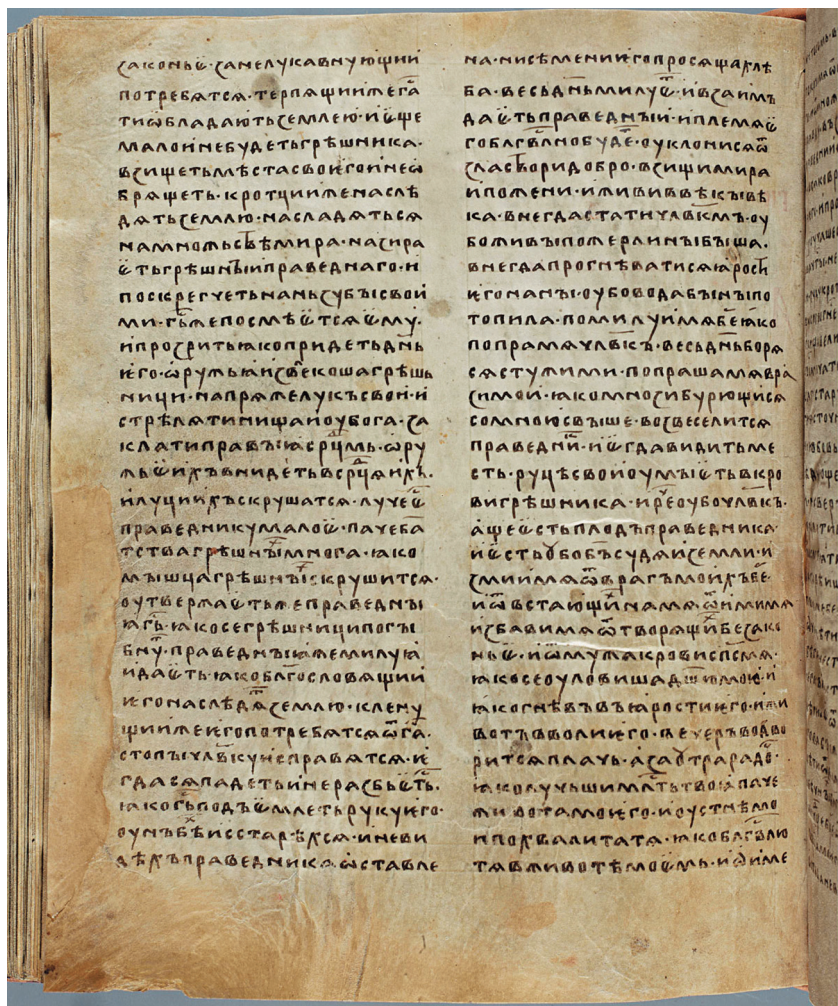 законьѥ · занелукавнующии
потребятся · терпящиижега
тиѡбладаютьземлею · иѥще
малоинебудетьгрѣшника ·
взищетьмѣстасвоѥгоинеѡ
брящеть · кротцииженаслѣ
дятьземлю · насладяться
намножьствѣмира · назира
ѥтьгрѣшныиправеднаго · и
поскрегчетьнаньзубысвои
ми · гьжепосмѣѥтсяѥму ·
ипрозритьꙗкопридетьднь
ѥго · ѡружьꙗизвлекошагрѣшь
ници · напряжелукъсвои · и
стрѣлятинищаиоубога · за
клатиправыꙗсрцмь · ѡру
жьѥихъвнидетьвсрцяихъ ·
илуцииихъскрушатся · лучеѥ
праведникумалоѥ · пачеба
тствагрѣшныхмнога · ꙗко
мышцагрѣшныхскрушится ·
оутвержаѥтьжеправедны
ꙗгь · ꙗкосегрѣшниципогы
бну · праведныꙗжемилуꙗ
идаѥть · ꙗкоблгословящии
ѥгонаслѣдятземлю · клену
щиижеѥгопотребятсяѿга ·
стопычлвкунсправятся · ѥ
гдасяпадетьинеразбьѥть ·
ꙗкогьподъѥмлетьрукуѥго ·
оунъбѣхисстарѣхся · иневи
дѣхъправедникаѡставле
на · нисѣмениѥгопросящахлѣ
ба · весьдньмилуѥт · ивзаимъ
даѥтьправедныи · иплемяѥ
гоблгвлнобуде · оуклонисяѿ
зластворидобро · взищимира
ипожени · ижививвѣкывѣ
ка · внегдастатичлвкмъ · оу
боживыпожерлиныбыша ·
внегдапрогнѣватисяꙗрости
ѥгонаны · оубоводабыныпо
топила · помилуимябеꙗко
попрамячлвкъ · весьдньборя
сястужими · попрашамявра
зимои · ꙗкомнозибурющися
сомноюсвыше · возвеселится
праведни · иѥгдавидитьме
сть · руцѣсвоиоумыѥтьвкро
вигрѣшника · иреоубочлвкъ ·
ащеѥстьплодъправедника ·
иѥстьубобъсудяиземли · и
змиимяѿврагъмоихъбе
иѿвстающихнамя · ѿимимя
избавимяѿтворящихбезако
ньѥ · иѿмужакровиспсмя ·
ꙗкосеоуловишадшюмою · и
ꙗкогнѣвъвъꙗростиѥго · ижи
вотъвволиѥго · вечеръводво
ритсяплачь · азаутрарадо ·
ꙗколучьшимлтьтвоꙗпаче
животамоѥго · иоустнѣмо
ипохвалитатя · ꙗкоблгвлю
тявживотѣмоѥмь · иѡиме